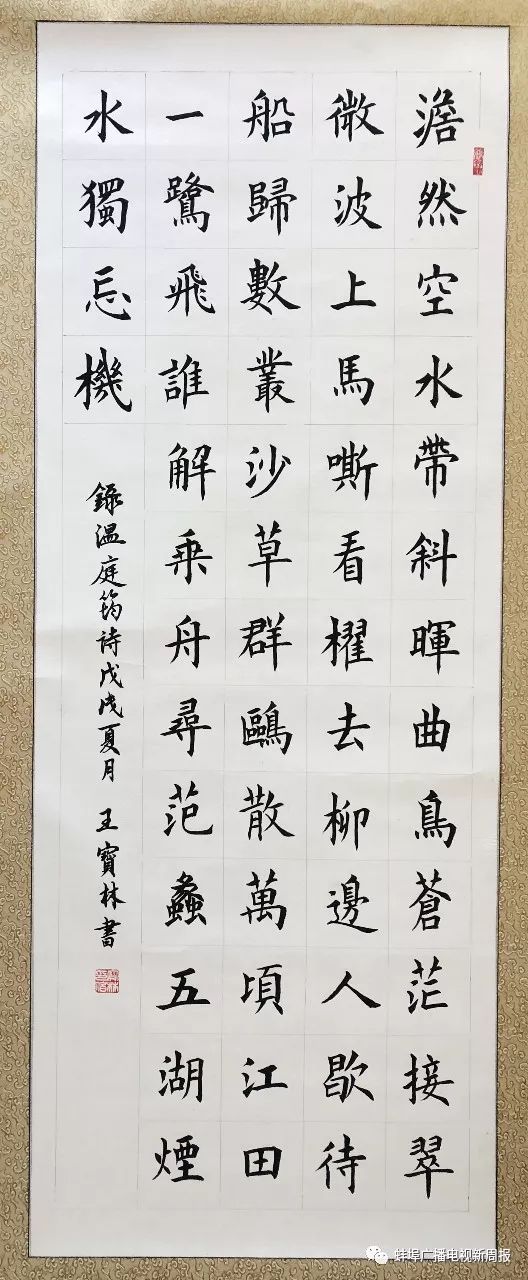 澹然空水帶斜暉曲鳥蒼茫接翠
微波上馬嘶看櫂去柳邊人歇待
船歸數叢沙草群鷗散萬頃江田
一鷺飛誰解乘舟尋范蠡五湖煙
水獨忘機
錄温庭筠詩戊戌夏月 王寶林書
蚌埠广播电视新周报